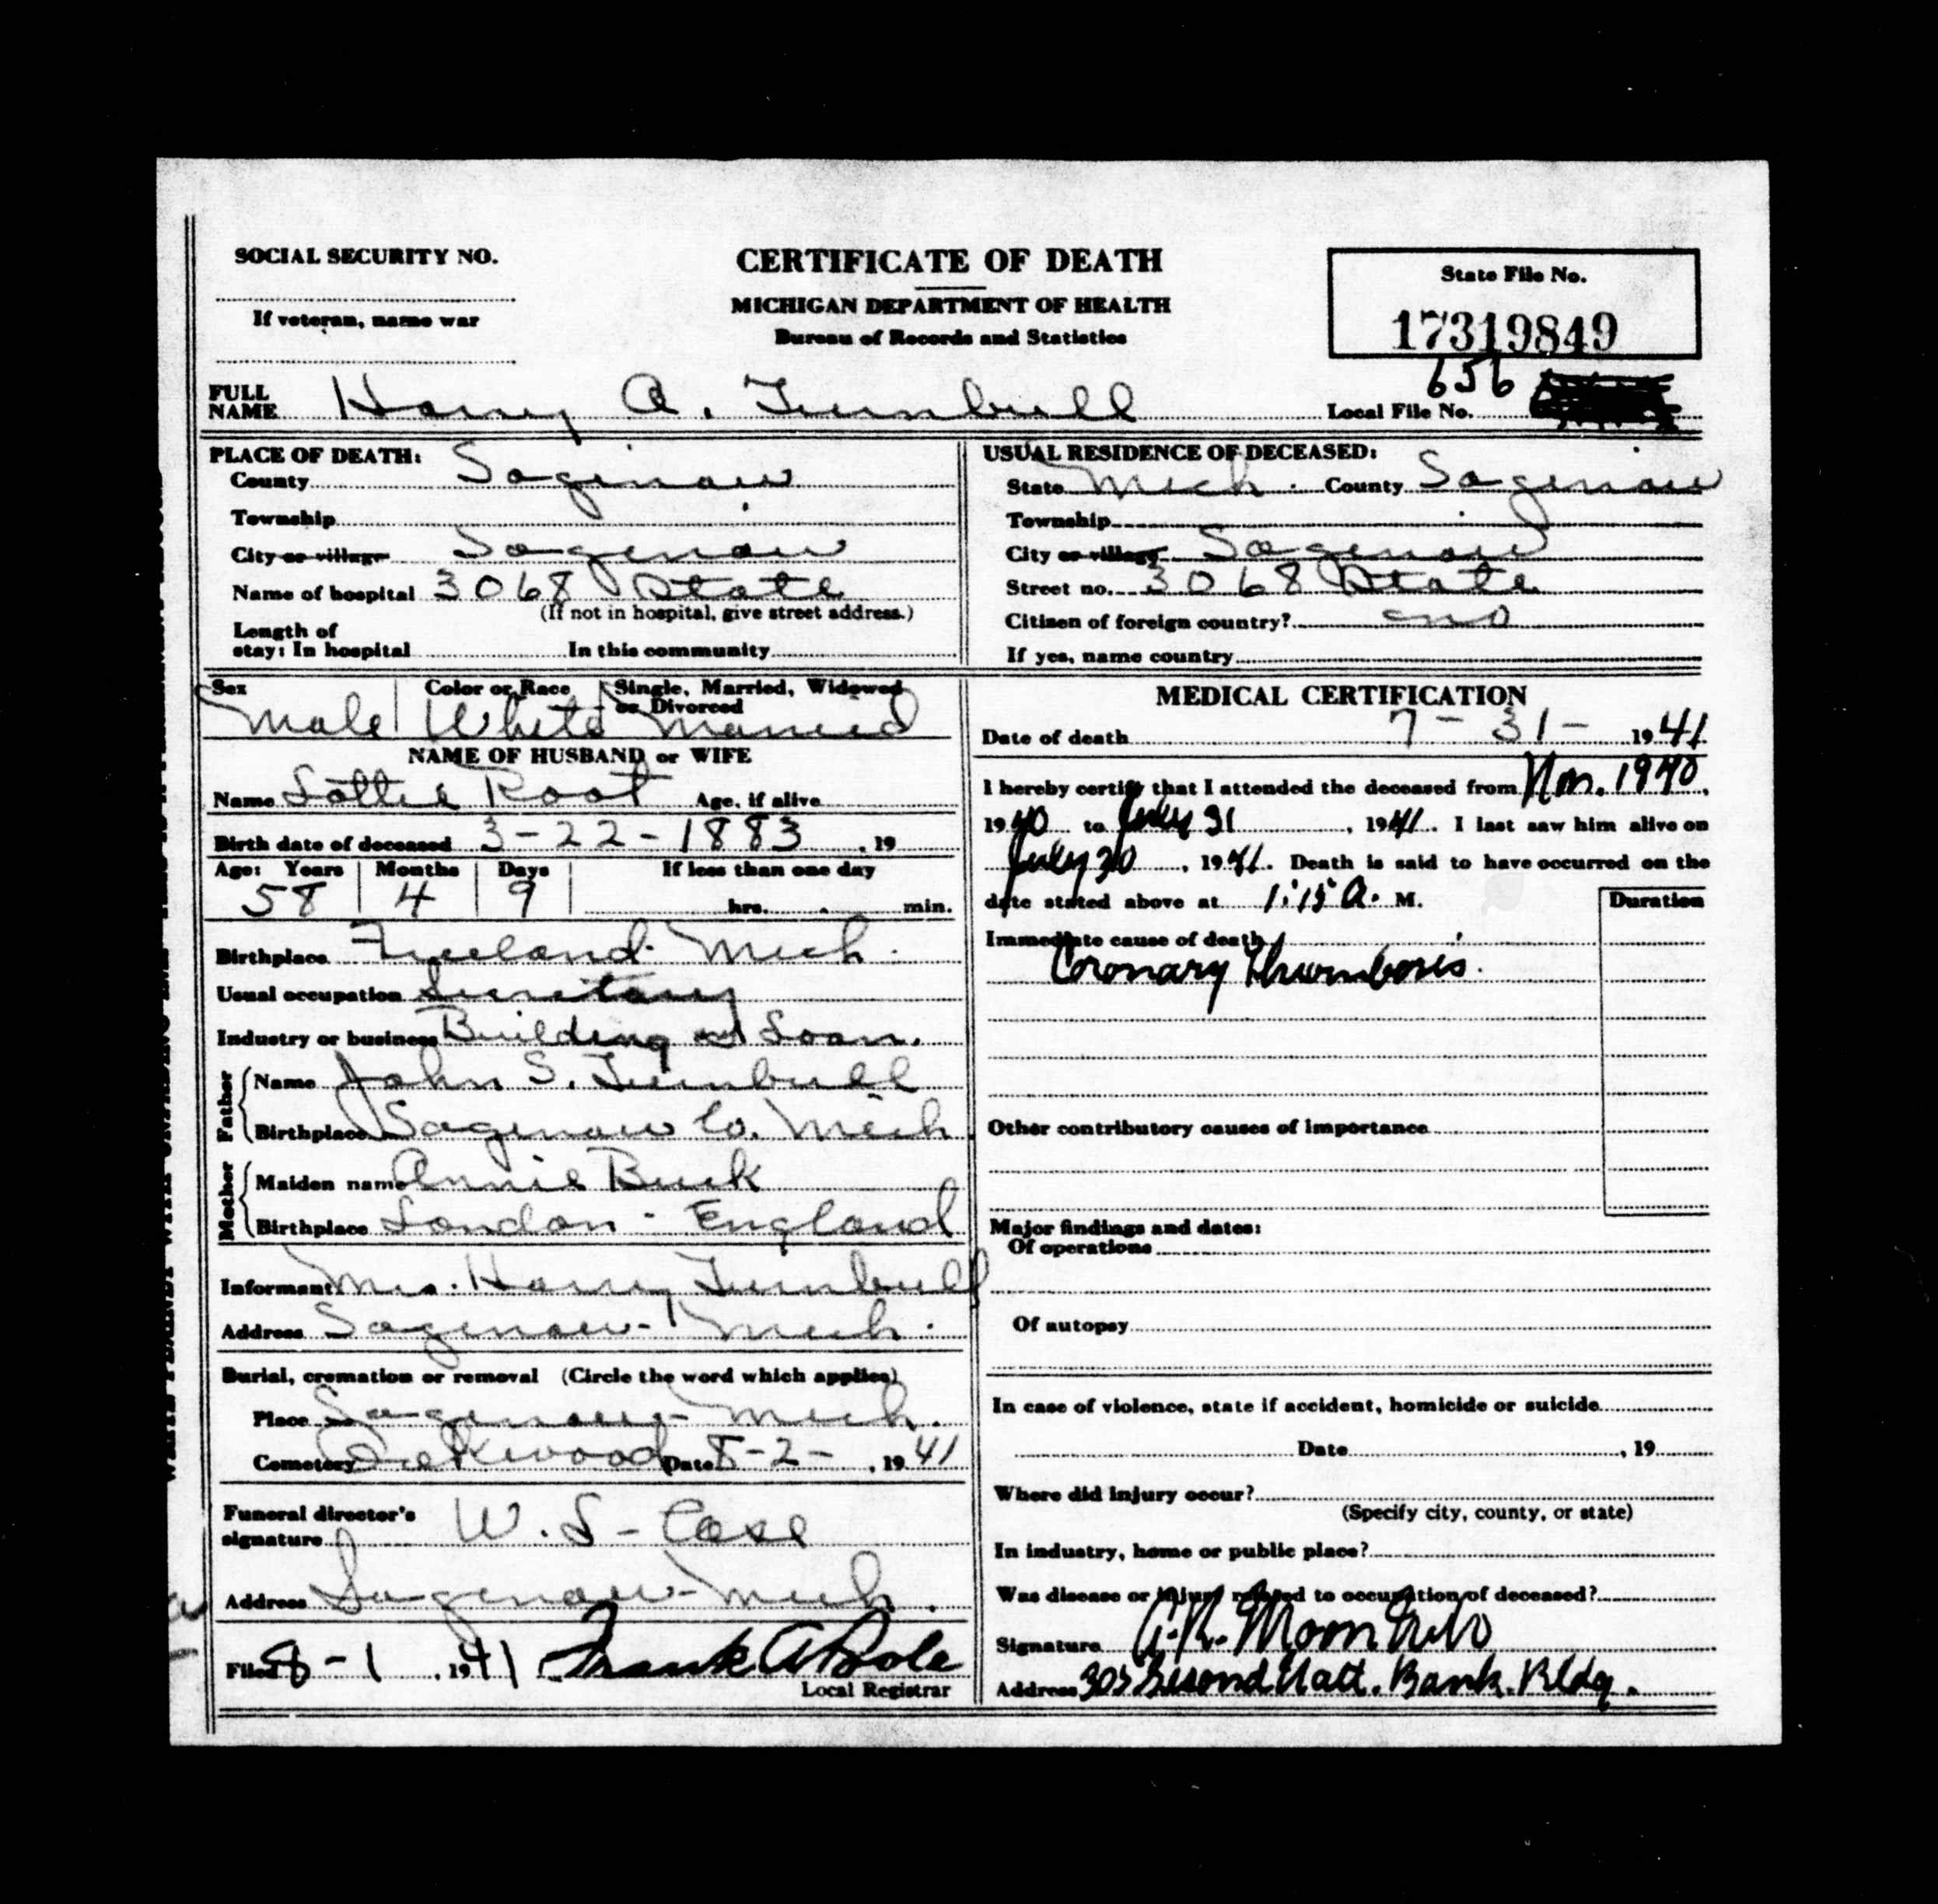 SOCIAL SECURITY NO.
If veteran, name war
CERTIFICATE OF DEATH
MICHIGAN DEPARTMENT OF HEALTH
Bureau of Records and Statistics
State File No.
17319849
656
FULL NAME Harry A. Turnbull
Local File No.
PLACE OF DEATH:
County Saginaw
Township
City or village Saginaw
Name of hospital 3068 State
(If not in hospital, give street address.)
Length of
stay: In hospital In this community
USUAL RESIDENCE OF DECEASED:
State Mich. County Saginaw
Township
City or village Saginaw
Street no. 3068 State
Citizen of foreign country? no
If yes, name country
Sex Color or Race Single, Married, Widowed or Divorced
Male White Married
NAME OF HUSBAND or WIFE
Name Lottie Root Age, if alive
Birth date of deceased 3-22-1883, 19
Age: Years Months Days If less than one day
58 4 9 hrs. min.
Birthplace Freeland Mich.
Usual occupation Secretary
Industry or business Building & Loan.
Father
Name John S. Turnbull
Birthplace Saginaw Co. Mich.
Mother
Maiden name Annie Buck
Birthplace London - England
Informant Mrs. Harry Turnbull
Address Saginaw - Mich.
Burial, cremation or removal (Circle the word which applies)
Place Saginaw - Mich.
Cemetery Oakwood Date 8-2-, 1941
Funeral director's
signature W. S - Case
Address Saginaw - Mich.
Filed 8-1, 1941 Frank A Pole
Local Registrar
MEDICAL CERTIFICATION
Date of death 7-31- 1941
I hereby certify that I attended the deceased from Nov. 1940,
1940 to July 31, 1941. I last saw him alive on
July 30, 1941. Death is said to have occurred on the
date stated above at 1:15 A. M.
Duration
Immediate cause of death
Coronary Thrombosis.
Other contributory causes of importance
Major findings and dates:
Of operations
Of autopsy
In case of violence, state if accident, homicide or suicide
Date , 19
Where did injury occur?
(Specify city, county, or state)
In industry, home or public place?
Was disease or injury related to occupation of deceased?
Signature A.R. Moon
Address 303 Second Natl. Bank. Bldg.